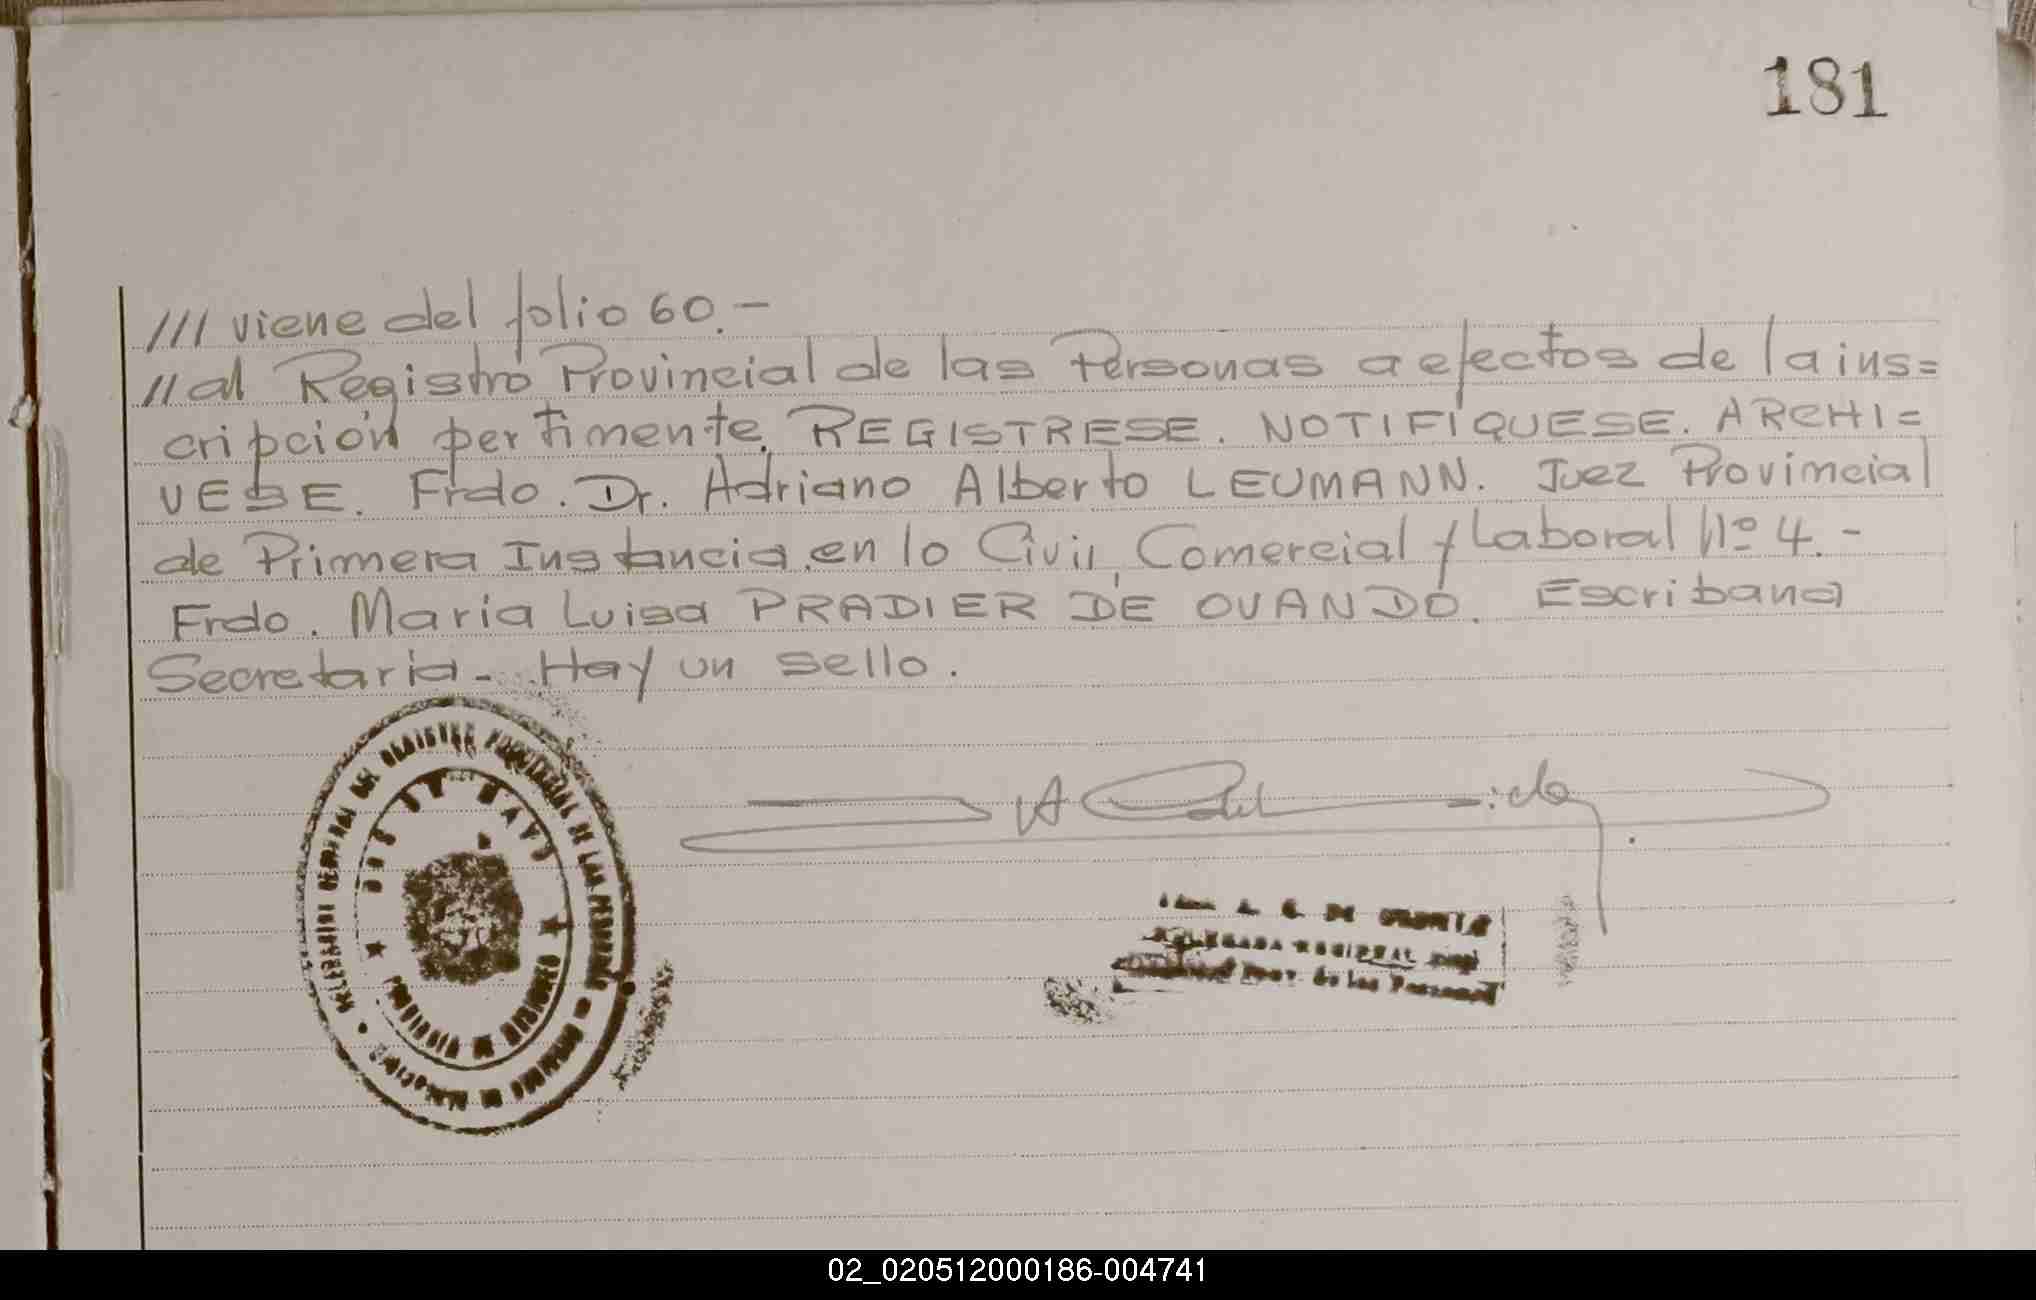 181
/// viene del folio 60.-
//al Registro Provincial de las Personas a efectos de la ins=
cripción pertimente. REGISTRESE. NOTIFÍQUESE. ARCHI=
VESE. Frdo. Dr. Adriano Alberto LEUMANN. Juez Provincial
de Primera Instancia, en lo Civil, Comercial y Laboral Nº 4.-
Frdo. María Luisa PRADIER DE OVANDO. Escribana
Secretaria. Hay un sello.
DELEGADA REGIONAL
Prov. de las Personas
02_020512000186-004741